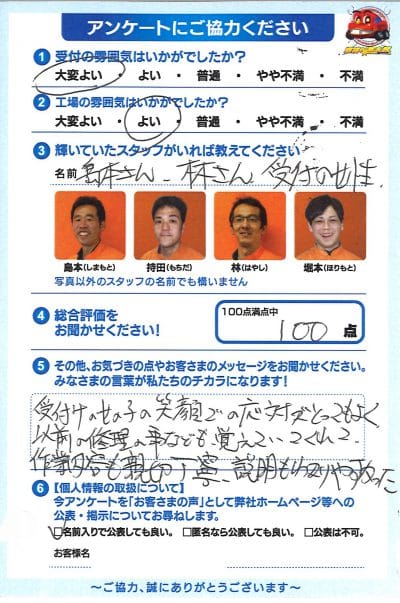 アンケートにご協力ください
1 受付の雰囲気はいかがでしたか?
大変よい ・ よい ・ 普通 ・ やや不満 ・ 不満
2 工場の雰囲気はいかがでしたか?
大変よい ・ よい ・ 普通 ・ やや不満 ・ 不満
3 輝いていたスタッフがいれば教えてください
名前 島本さん、林さん 受付の女性
島本(しまもと) 持田(もちだ) 林(はやし) 堀本(ほりもと)
写真以外のスタッフの名前でも構いません
4 総合評価をお聞かせください!
100点満点中
100 点
5 その他、お気づきの点やお客さまのメッセージをお聞かせください。
みなさまの言葉が私たちのチカラになります!
受付けの女の子の笑顔での応対がとってもよく
以前の修理の事なども覚えていてくれて
作業内容も親切丁寧 説明もわかりやすかった
6 【個人情報の取扱について】
今アンケートを「お客さまの声」として弊社ホームページ等への
公表・掲示についてお尋ねします。
□名前入りで公表しても良い。 □匿名なら公表しても良い。 □公表は不可。
お客様名
〜ご協力、誠にありがとうございます〜